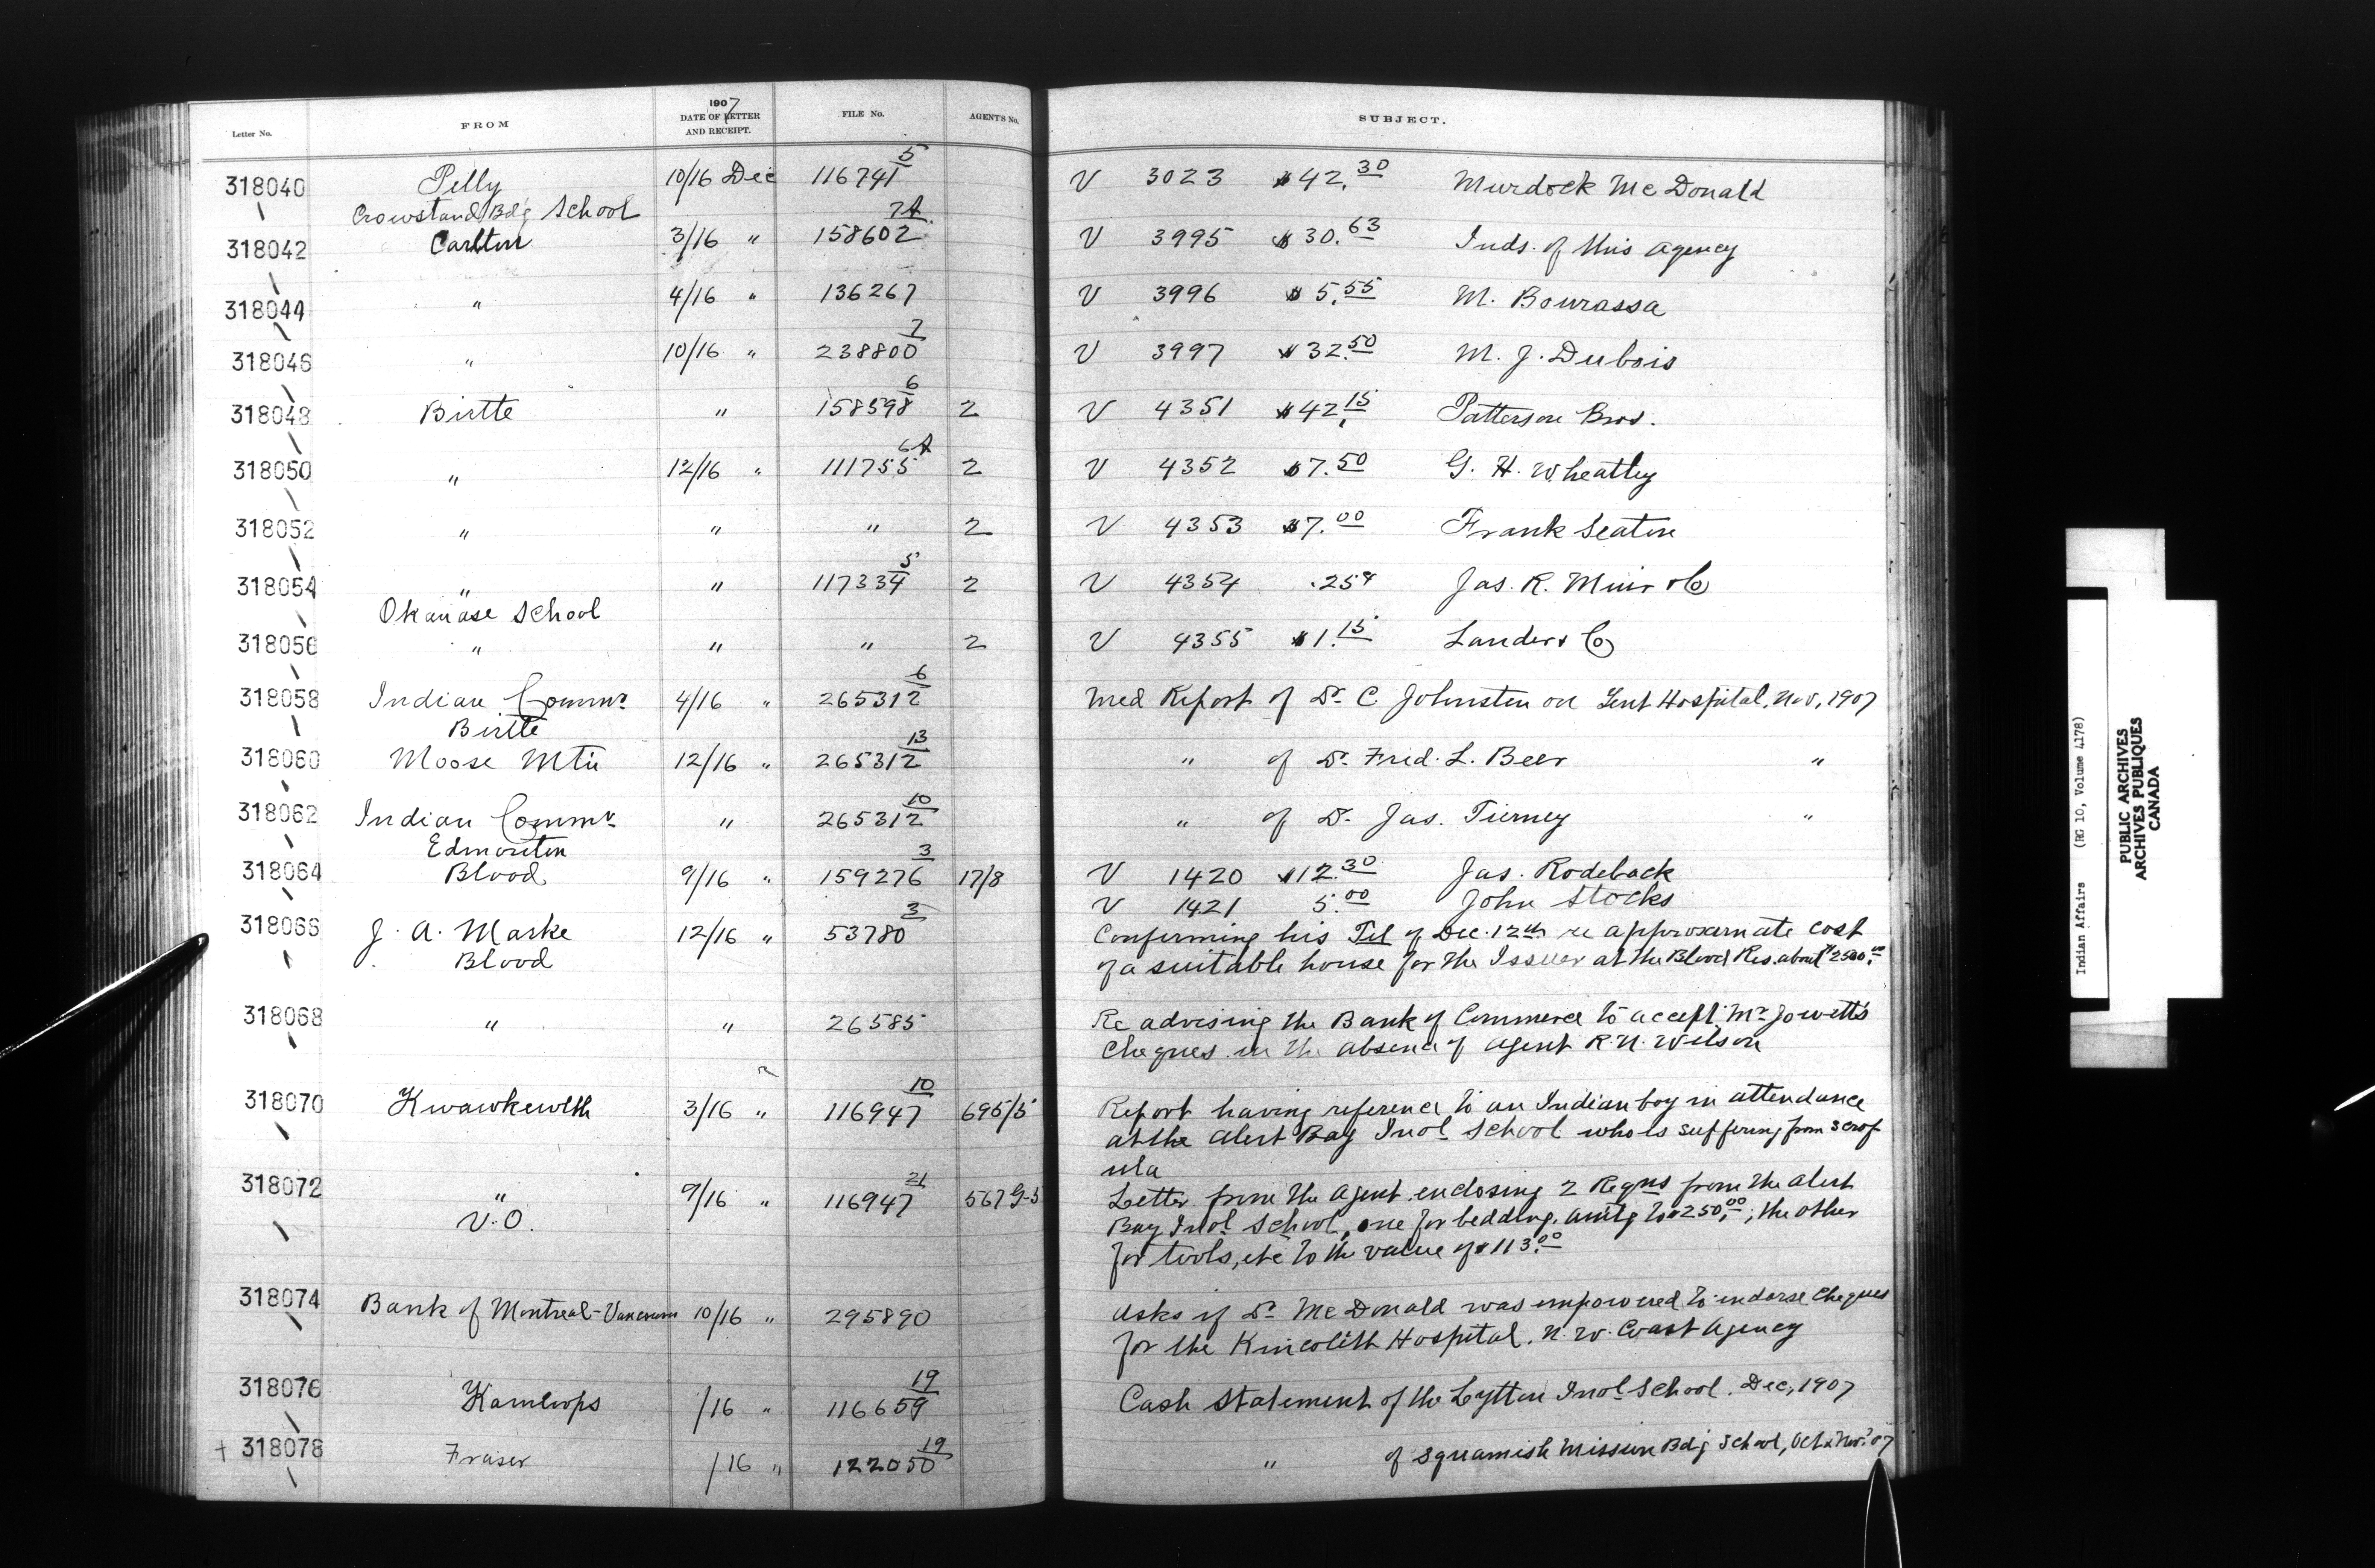 Letter No. FROM 1907 DATE OF LETTER AND RECEIPT. FILE No. AGENT'S No. SUBJECT.
318040 Pelly 10/16 Dec 116741 5 V 3023 $42.30 Murdock McDonald
Crowstand Bdg School
318042 Carlton 3/16 " 158602 7A V 3995 $30.63 Inds. of this agency
318044 " 4/16 " 136267 V 3996 $5.55 M. Bourassa
318046 " 10/16 " 238800 7 V 3997 $32.50 M. J. Dubois
318048 Birtle " 158598 6 2 V 4351 $42.15 Patterson Bros.
318050 " 12/16 " 111755 6A 2 V 4352 $7.50 G. H. Wheatley
318052 " " " 2 V 4353 $7.00 Frank Seaton
318054 " " 117334 5 2 V 4354 .25¢ Jas. R. Muir & Co
Okanase School
318056 " " " 2 V 4355 $1.15 Lauder & Co
318058 Indian Commr. 4/16 " 265312 6 Med Report of Dr. C Johnston on Tent Hospital, Nov, 1907
Birtle
318060 Moose Mtn 12/16 " 265312 13 " of Dr. Fred. L. Beer "
318062 Indian Commr. " 265312 10 " of Dr. Jas. Tierney "
Edmonton
318064 Blood 9/16 " 159276 3 17/8 V 1420 $12.30 Jas. Rodeback
V 1421 5.00 John Stocks
318066 J. A. Marke 12/16 " 53780 3 Confirming his Tel of Dec. 12th re approximate cost
Blood of a suitable house for the Issuer at the Blood Res. about $2500.00
318068 " " 26585 Re advising the Bank of Commerce to accept Mr Jowett's
Cheques in the absence of agent R. N. Wilson
318070 Kwawkewlth 3/16 " 116947 10 695/5 Report having reference to an Indian boy in attendance
at the Alert Bay Indl School who is suffering from scrof
ula
318072 " 9/16 " 116947 21 567 G-5 Letter from the Agent enclosing 2 Reqns from the Alert
V.O. Bay Indl School, one for bedding, amtg to $250.00; the other
for tools, etc to the value of $113.00
318074 Bank of Montreal - Vancouver 10/16 " 295890 Asks if Dr. McDonald was empowered to endorse Cheques
for the Kincolith Hospital. N. W. Coast Agency
318076 Kamloops /16 " 116659 19 Cash Statement of the Lytton Indl School. Dec, 1907
+ 318078 Fraser /16 " 122050 19 " of Squamish Mission Bdg School, Oct & Nov. '07
Indian Affairs (RG 10, Volume 4178)
PUBLIC ARCHIVES
ARCHIVES PUBLIQUES
CANADA